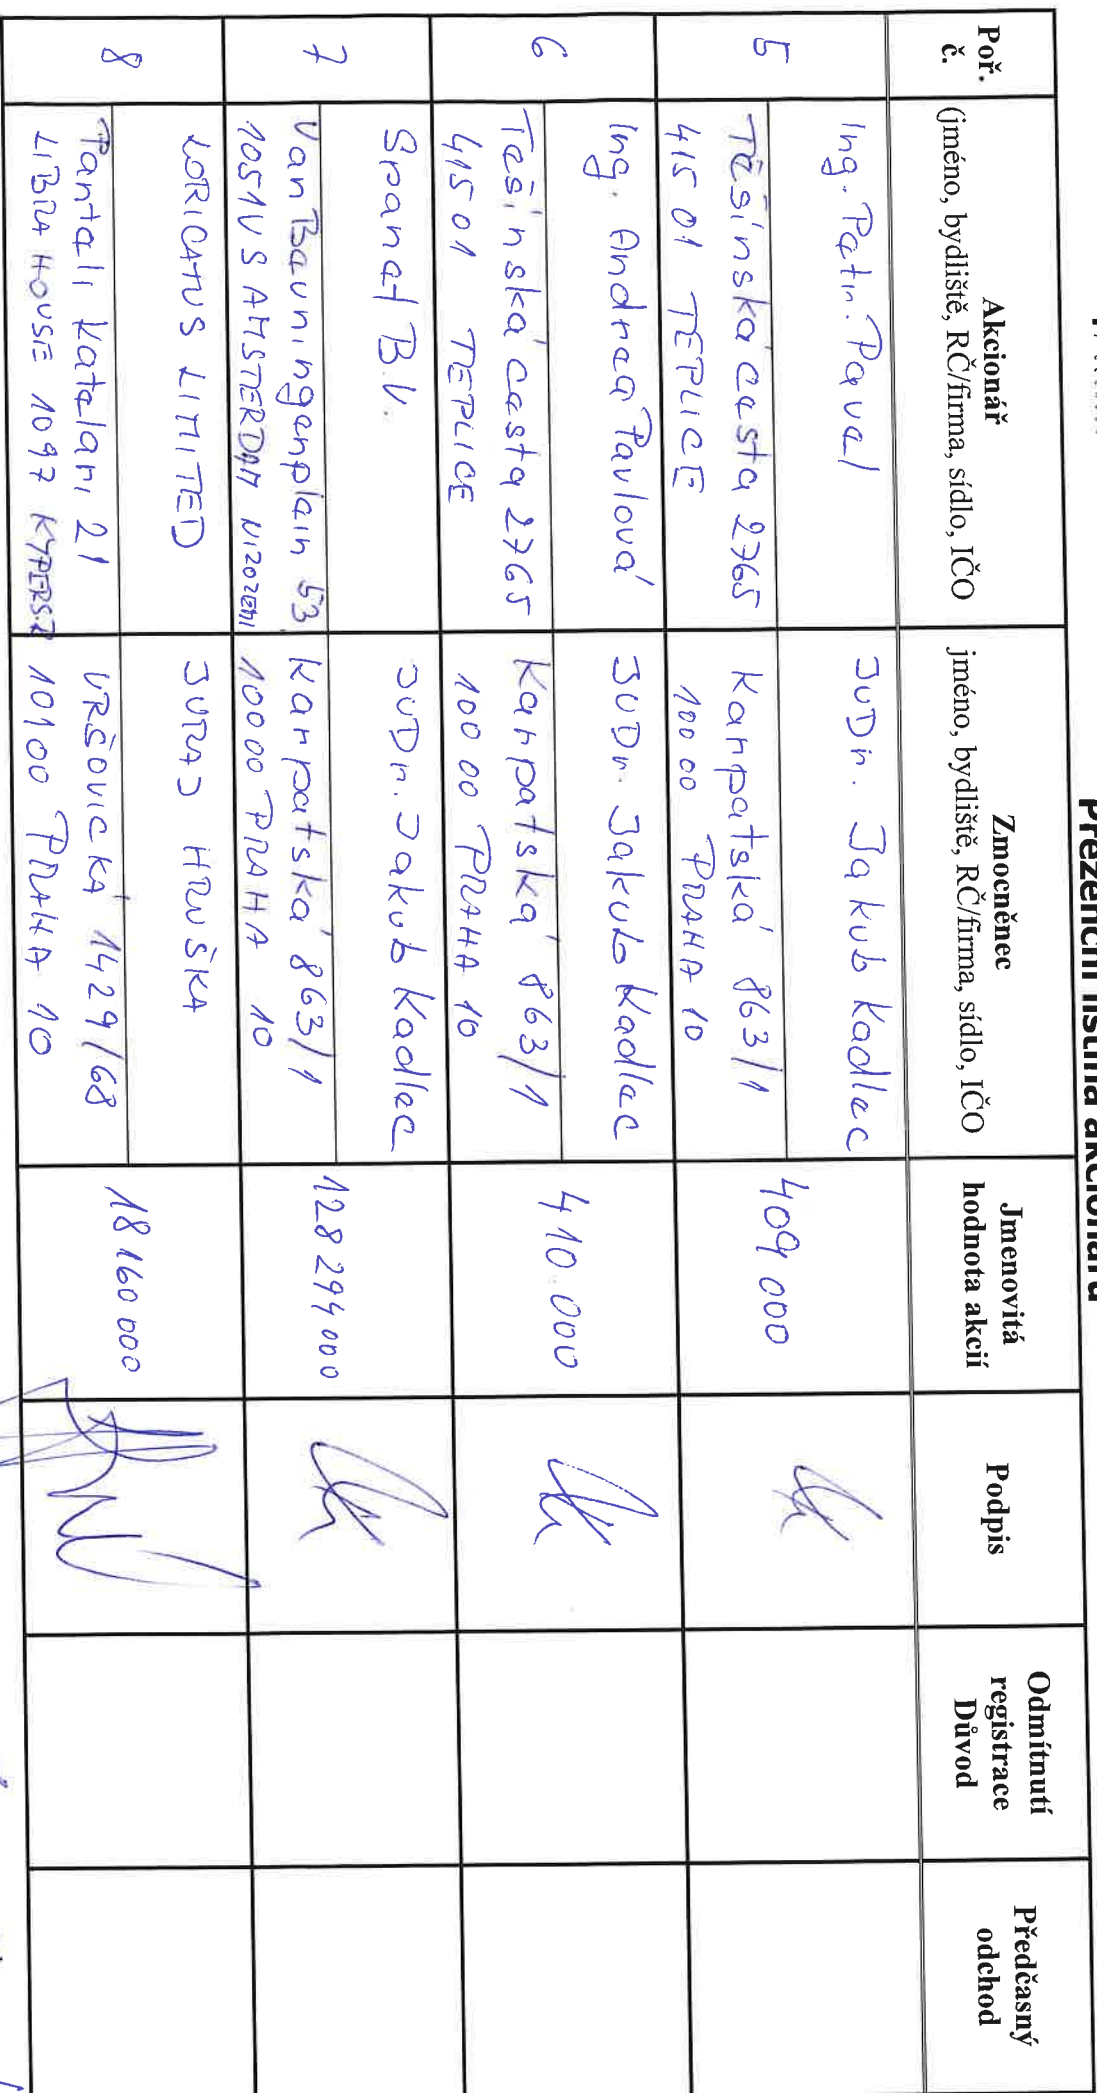 Prezenční listina akcionářů
Poř. č.
Akcionář
(jméno, bydliště, RČ/firma, sídlo, IČO
Zmocněnec
jméno, bydliště, RČ/firma, sídlo, IČO
Jmenovitá
hodnota akcií
Podpis
Odmítnutí
registrace
Důvod
Předčasný
odchod
5
Ing. Petr Pavel
Těšínská cesta 2765
415 01 TEPLICE
JUDr. Jakub Kadlec
Karpatská 863/1
100 00 PRAHA 10
409 000
6
Ing. Andrea Pavlová
Tešínská cesta 2765
415 01 TEPLICE
JUDr. Jakub Kadlec
Karpatská 863/1
100 00 PRAHA 10
410.000
7
B.V.
53
1051VS AMSTERDAM NIZOZEMI
JUDr. Jakub Kadlec
Karpatská 863/1
10000 PRAHA 10
128 294 000
8
LORICATUS LIMITED
Panteli Katelari 21
LIBRA HOUSE 1097
JURAJ HRUŠKA
VRŠOVICKÁ 1429/68
10100 PRAHA 10
18160000